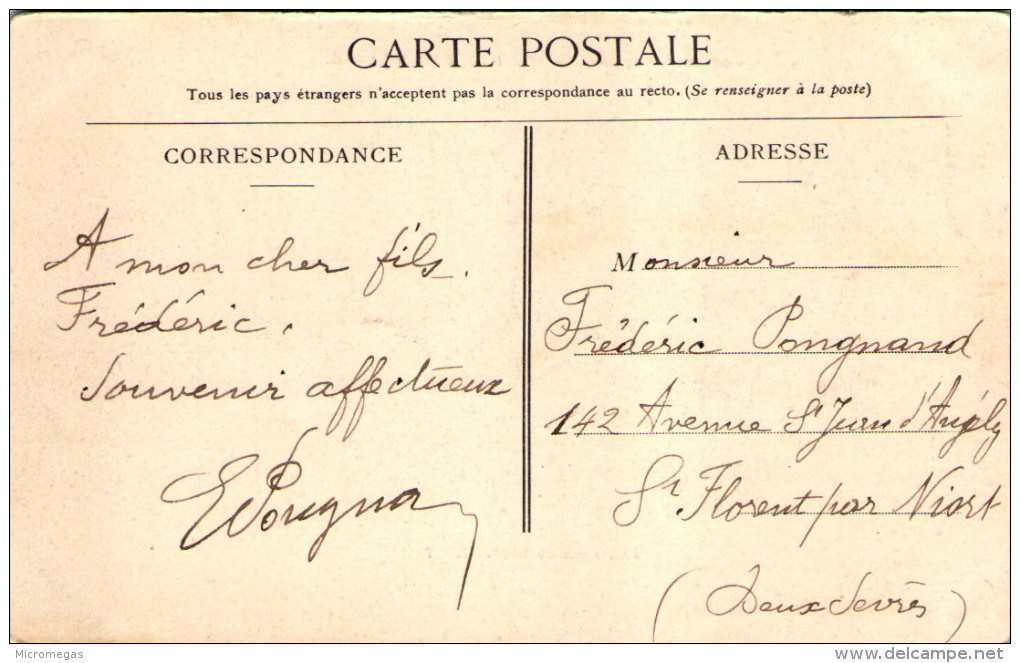 CARTE POSTALE
Tous les pays étrangers n'acceptent pas la correspondance au recto. (Se renseigner à la poste)
CORRESPONDANCE
A mon cher fils.
Frédéric.
Souvenir affectueux
ADRESSE
Monsieur
Frédéric Pougnand
142 Avenue St Jean d'Angély
St. Florent par Niort
(Deux Sevrès)
Micromegas
delcampe.net